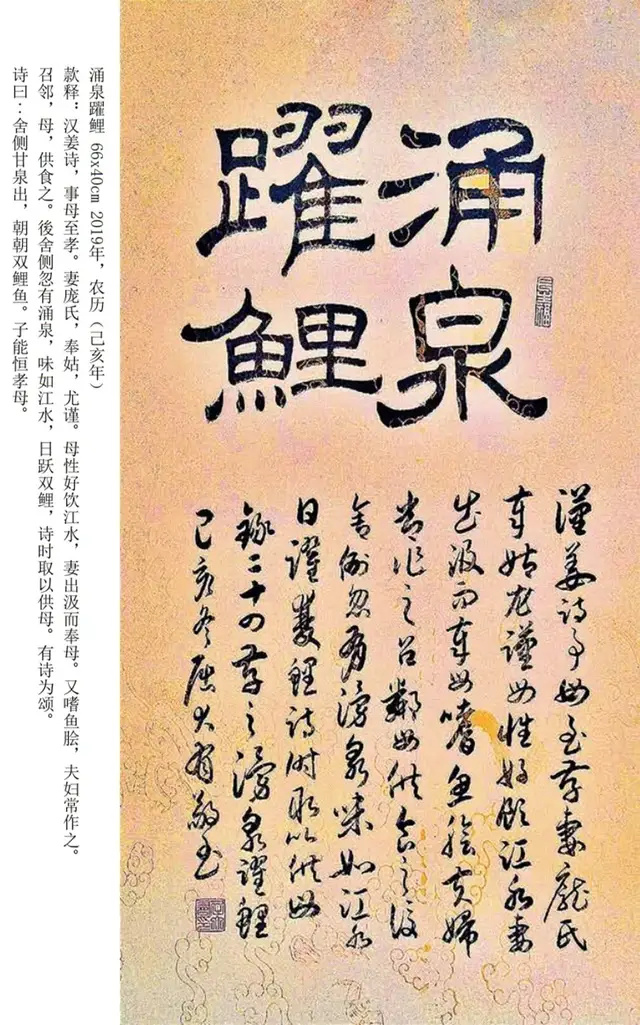 涌泉
躍鯉
漢姜詩事母至孝妻龐氏
奉姑尤謹母性好飲江水妻
出汲而奉母嗜魚膾夫婦
常作之召鄰母供食之後
舍側忽有湧泉味如江水
日躍雙鯉詩時取以供母
錄二十四孝之湧泉躍鯉
己亥冬屈大有敬书
涌泉躍鲤 66x40cm 2019年,农历(己亥年)
款释:汉姜诗,事母至孝。妻庞氏,奉姑,尤谨。母性好饮江水,妻出汲而奉母。又嗜鱼脍,夫妇常作之。
召邻,母,供食之。後舍侧忽有涌泉,味如江水,日跃双鲤,诗时取以供母。有诗为颂。
诗曰:舍侧甘泉出,朝朝双鲤鱼。子能恒孝母。